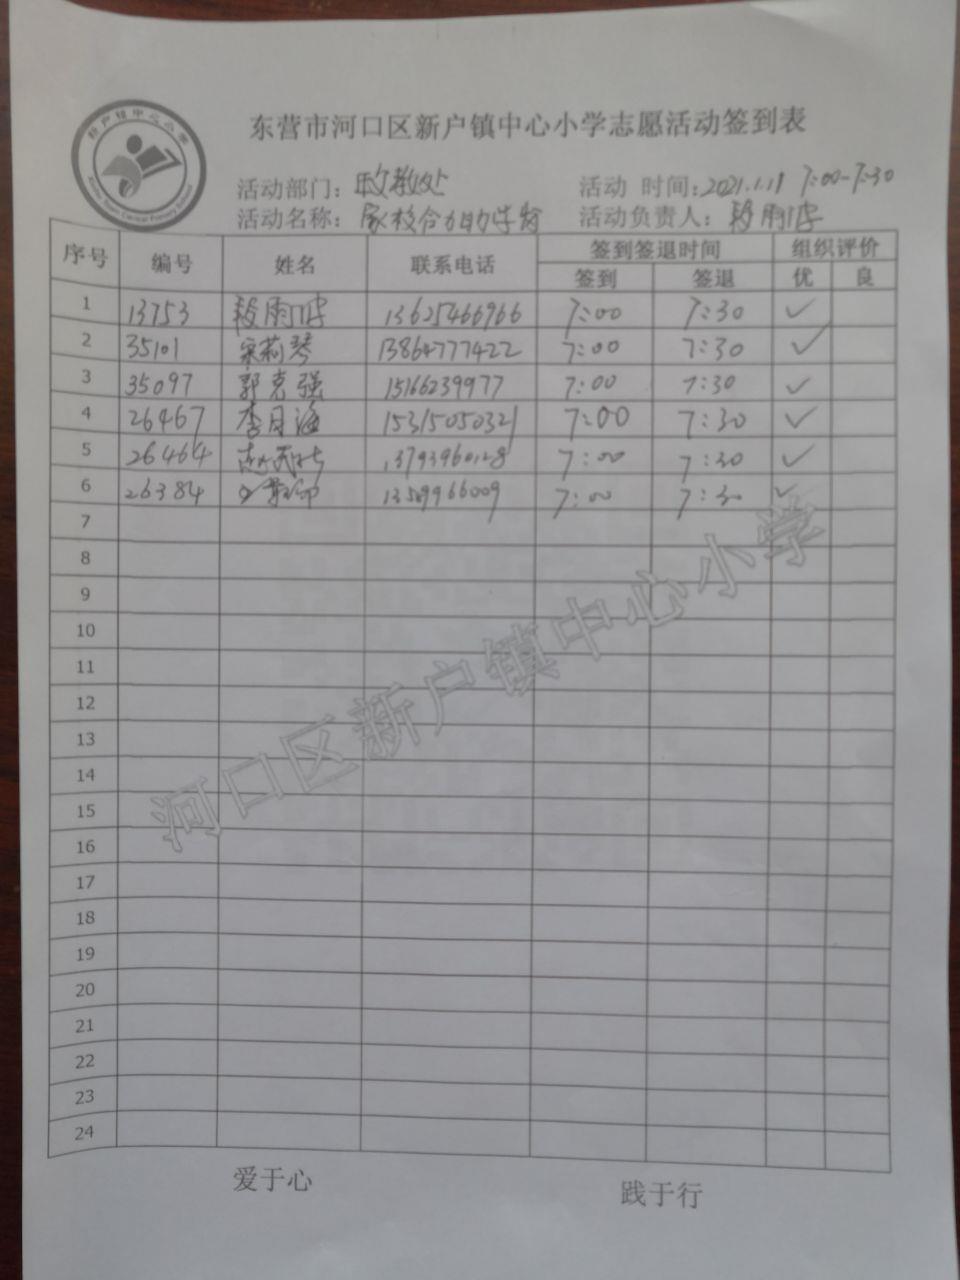 新户镇中心小学
Xinhu Town Central Primary School
东营市河口区新户镇中心小学志愿活动签到表
活动部门：政教处 活动 时间：2021.1.11 7:00-7:30
活动名称：家校合力助学 活动负责人：段雨
序号 编号 姓名 联系电话 签到签退时间 组织评价
签到 签退 优 良
1 13753 段雨 13625466966 7:00 7:30 ✓
2 35101 宋莉琴 13864777422 7:00 7:30 ✓
3 35097 郭克强 15166239977 7:00 7:30 ✓
4 26467 李月海 15315050321 7:00 7:30 ✓
5 26464 13793960128 7:00 7:30 ✓
6 26384 7:00 7:30 ✓
7
8
9
10
11
12
13
14
15
16
17
18
19
20
21
22
23
24
河口区新户镇中心小学
爱于心 践于行